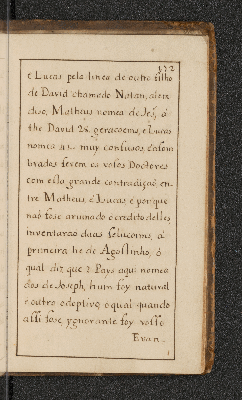 172
e Lucas pela linea de outro filho
de David chamado Natan, alem
diso, Matheus nomea de Jesu, a
the David 28. geracoems, e Lucas
nomea 42. muy confusos, e asom
brados ferem os vosos Doctores
com esta grande contradiçaõ en
tre Matheus, e Lucas e por que
naõ fose aruinado o credito delles
inventaraõ duas soluçoems, a
primeira he de Agostinho, o
qual diz que 2 Pays aqui nomea
dos de Joseph, hum foy natural
e outro adeptivo, o qual quando
assi fose, ygnorante foy vosso
Evan-